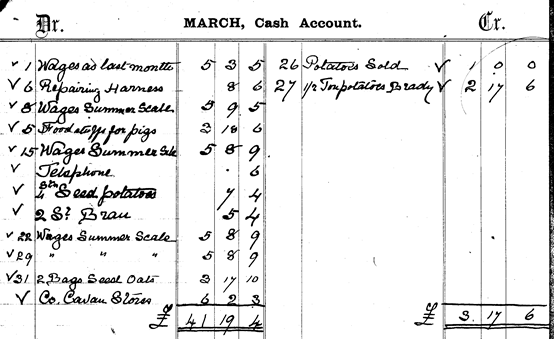 Dr. MARCH, Cash Account. Cr.
✓ 1 Wages as last month 5 3 5 26 Potatoes Sold ✓ 1 0 0
✓ 6 Repairing Harness 8 6 27 1/2 Ton potatoes Brady ✓ 2 17 6
✓ 8 Wages Summer Scale 5 9 5
✓ 5 Food stuffs for pigs 3 18 6
✓ 15 Wages Summer Scle 5 8 9
✓ Telephone . 6
✓ 4 Sts Seed potatoes 7 4
✓ 2 St. Bran 5 4
✓ 22 Wages Summer Scale 5 8 9
✓ 29 " " " 5 8 9
✓ 31 2 Bags Seed Oats 3 17 10
✓ Co. Cavan Stores 6 2 3
£ 41 19 4 £ 3. 17 6